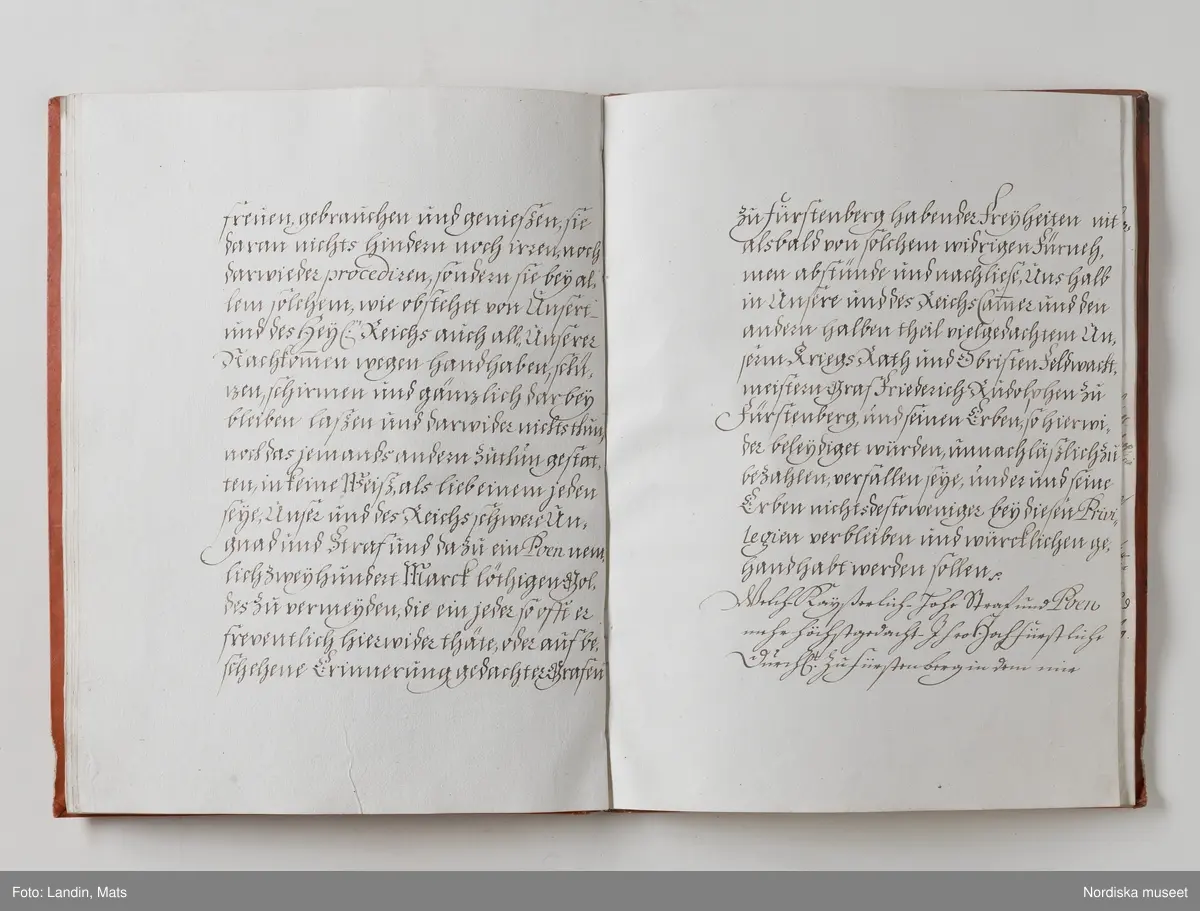 freuen, gebrauchen und genießen, sie
daran nichts hindern noch irren, noch
darwieder procediren, sondern sie bey al,
lem solchem, wie obstehet von Unsert-
und des Heyl: Reichs auch all, Unserer
Nachkom̄en wegen handhaben, schü,
zen, schirmen und gänzlich darbey
bleiben laßen und darwider nichts thun,
noch das jemands andern zuthun gestat,
ten, in keine Weiß, als lieb einem jeden
seye, Unser und des Reichs schwere Un,
gnad und Straf und dazu ein Poen nem,
lich zweyhundert Marck löthigen Gol,
des zu vermeyden, die ein jeder so offt er
freventlich hierwider thäte, oder auf be,
schehene Erinnerung gedachter Grafen
zu Fürstenberg habender Freyheiten nit
alsbald von solchem widrigen Fürneh,
men abstünde und nachliese, Uns halb
in Unsere und des Reichs Cam̄er und den
andern halben theil vielgedachtem Un,
serm Kriegs Rath und Obristen Feldwacht,
meistern Graf Friederich Rudolphen zu
Fürstenberg, und seinen Erben, so hierwi,
der beleydiget würden, unnachläßlich zu
bezahlen, verfallen seye, und er und seine
Erben nichts destoweniger bey diesen Privi,
legien verbleiben und würcklichen ge,
handhabt werden sollen.
Welch Kayßerlich-Hohe Straf und Poen
mehr höchstgedacht-Ihro Hochfürstliche
Durchl: zu Fürstenberg in dem mir
Foto: Landin, Mats
Nordiska museet